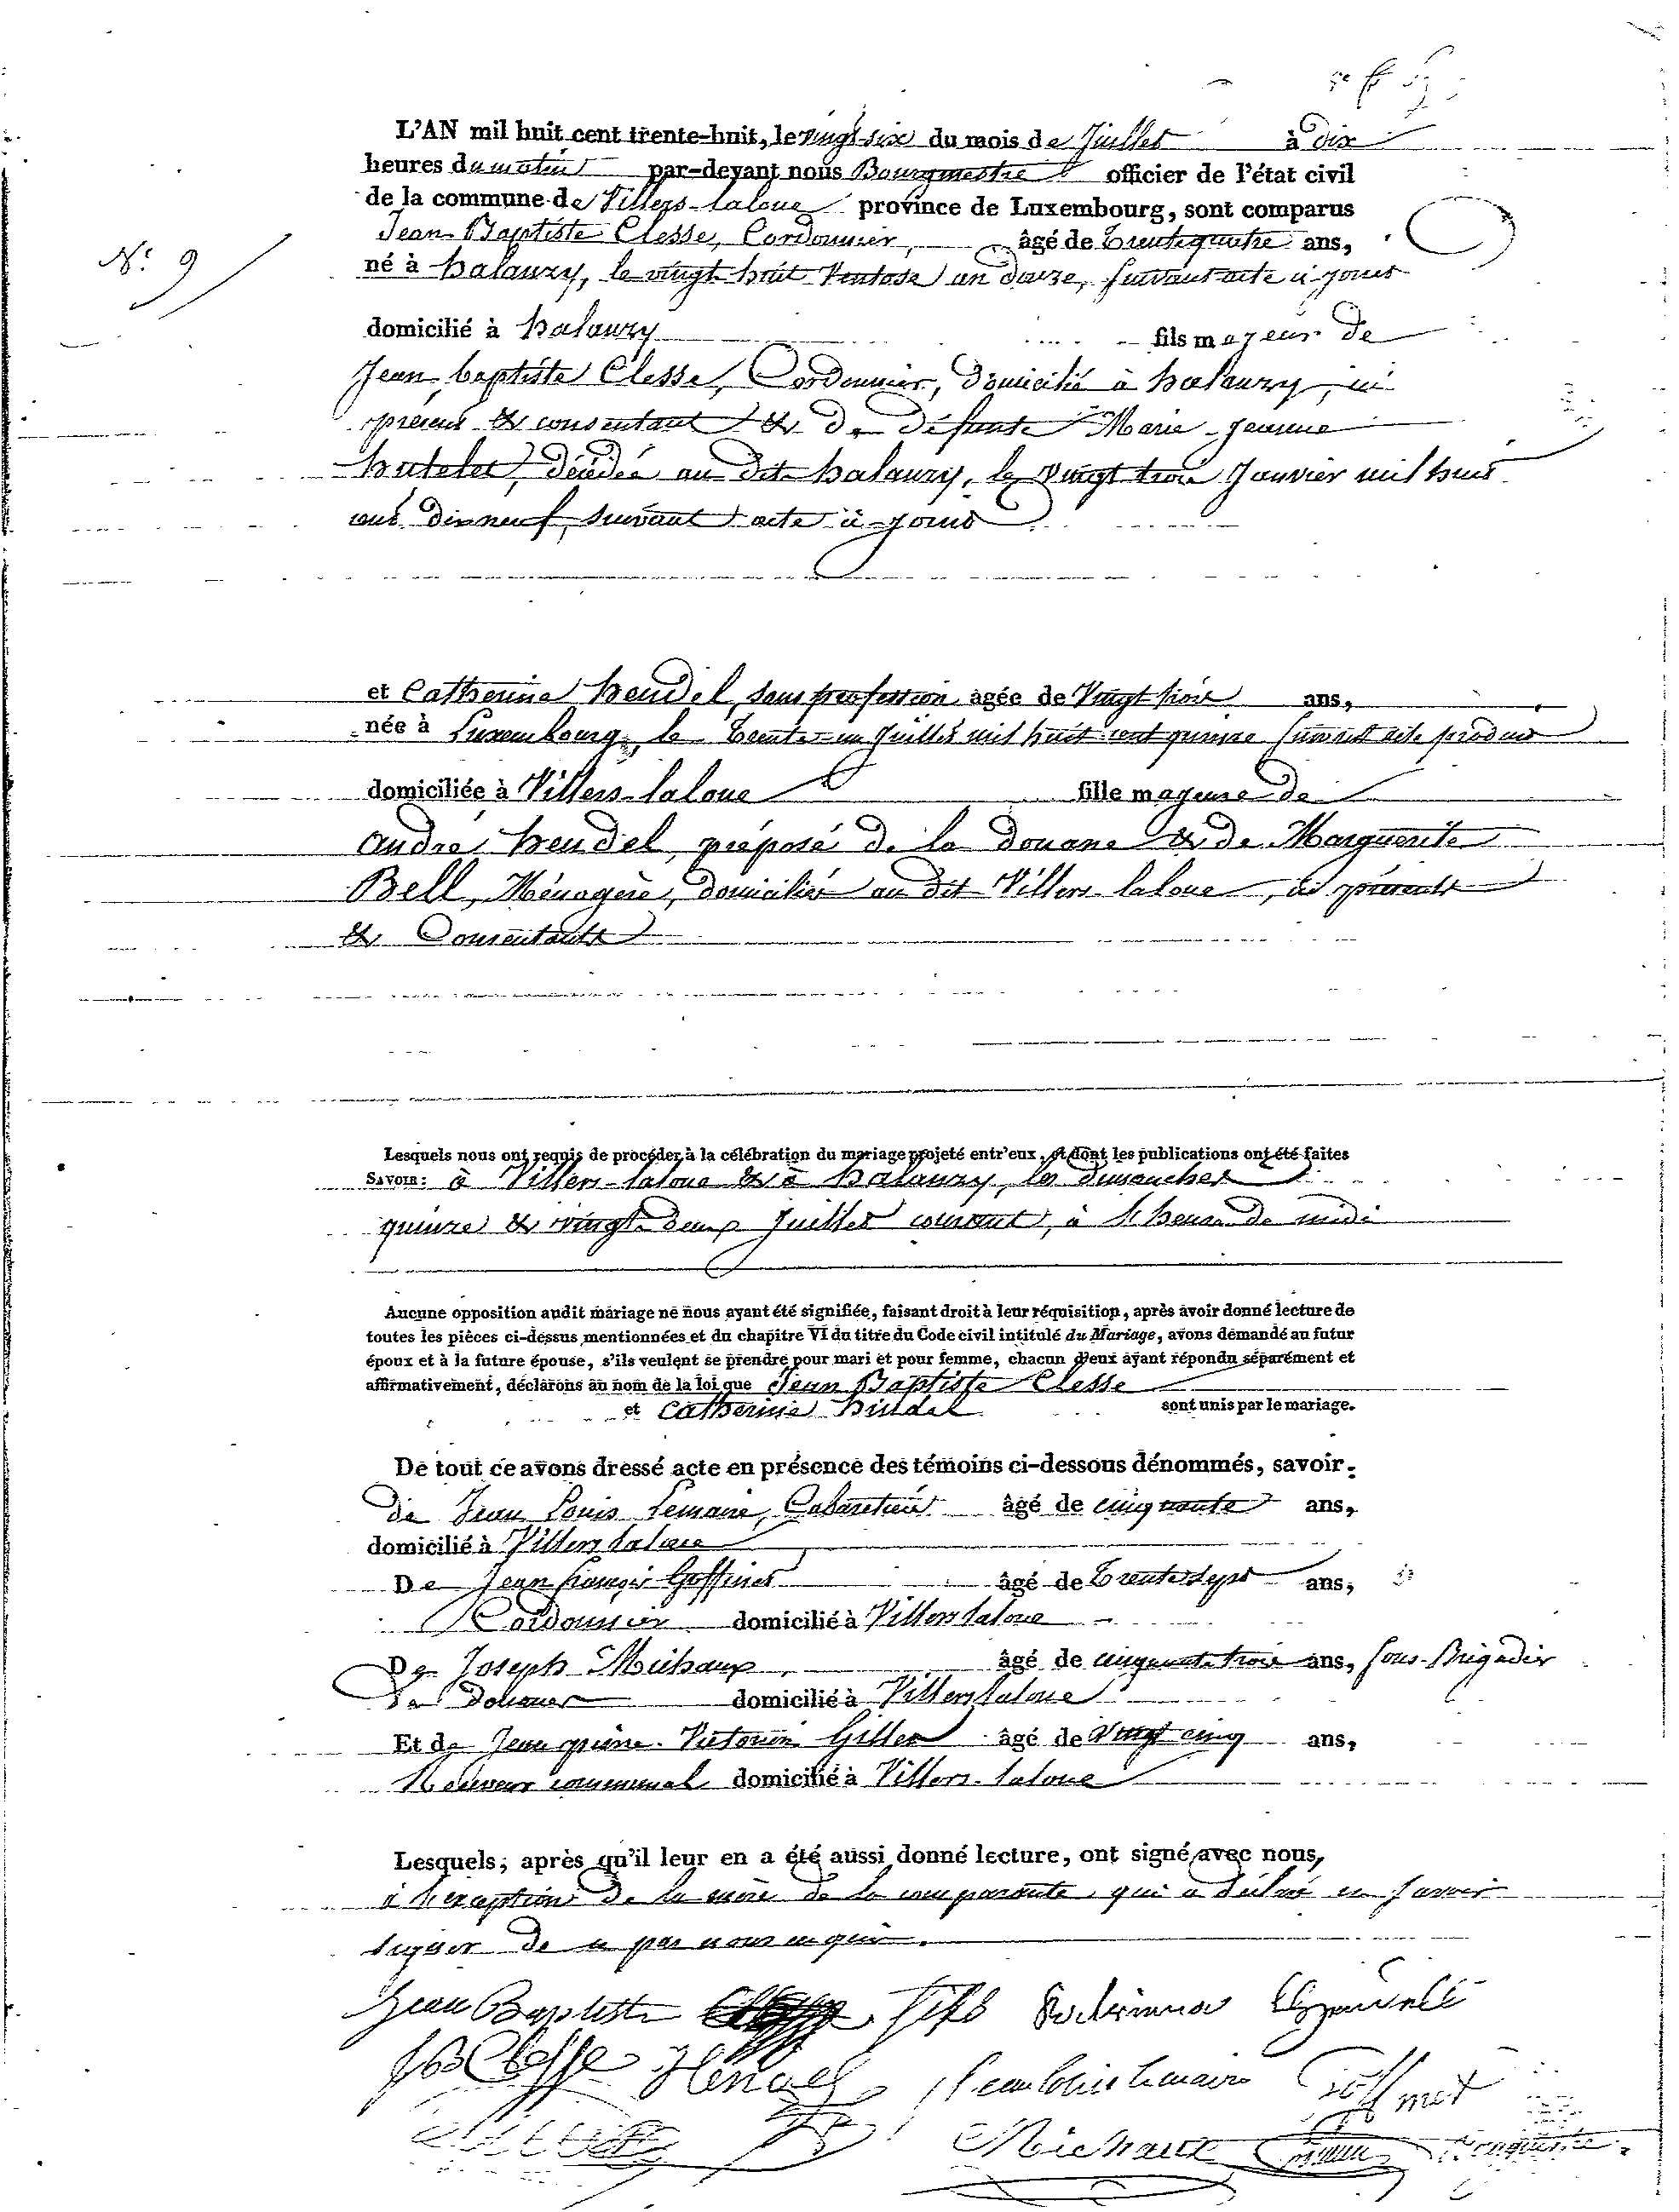 L'AN mil huit cent trente-huit, le vingt six du mois de Juillet à dix
heures du matin par-devant nous Bourgmestre officier de l'état civil
de la commune de Villers-laloue province de Luxembourg, sont comparus
N.° 9
Jean-Baptiste Clesse, Cordonnier, âgé de trente quatre ans,
né à halanzy, le vingt huit Ventose an douze, suivant acte ci-joint
domicilié à halanzy fils majeur de
Jean-baptiste Clesse, Cordonnier, domicilié à halanzy, ici
présent & consentant & de défunte Marie-jeanne
hutelet, décédée au dit halanzy, le vingt trois Janvier mil huit
cent dix neuf, suivant acte ci-joint
et Catherine hendel, sans profession âgée de Vingt trois ans,
née à Luxembourg, le trente-un juillet mil huit cent quinze suivant acte produit
domiciliée à Villers-laloue fille majeure de
andré hendel, préposé de la douane & de Marguerite
Bell, Ménagère, domiciliés au dit Villers-laloue, ici présents
& Consentants
Lesquels nous ont requis de procéder à la célébration du mariage projeté entr'eux, et dont les publications ont été faites
SAVOIR: à Villers-laloue & à halanzy, les dimanches
quinze & vingt-deux juillet courant, à l'heure de midi
Aucune opposition audit mariage ne nous ayant été signifiée, faisant droit à leur réquisition, après avoir donné lecture de
toutes les pièces ci-dessus mentionnées et du chapitre VI du titre du Code civil intitulé du Mariage, avons demandé au futur
époux et à la future épouse, s'ils veulent se prendre pour mari et pour femme, chacun d'eux ayant répondu séparément et
affirmativement, déclarons au nom de la loi que Jean Baptiste Clesse
et Catherine hindel sont unis par le mariage.
De tout ce avons dressé acte en présence des témoins ci-dessous dénommés, savoir.
de Jean Louis Lemaire, Cabaretier âgé de cinquante ans,
domicilié à Villers laloue
De Jean françois Goffinet âgé de trente sept ans,
Cordonnier domicilié à Villers laloue
De Joseph Michaux, âgé de cinquante trois ans, sous-Brigadier
des douanes domicilié à Villers laloue
Et de Jean pierre Victorin Gillet âgé de vingt cinq ans,
Receveur communal domicilié à Villers-laloue
Lesquels, après qu'il leur en a été aussi donné lecture, ont signé avec nous,
à l'exception de la mère de la comparante, qui a déclaré ne savoir
signer de ce par nous enquis.
Jean Baptiste fils
JB Clesse Hendel Jean Louis Lemaire Goffinet
Michaux